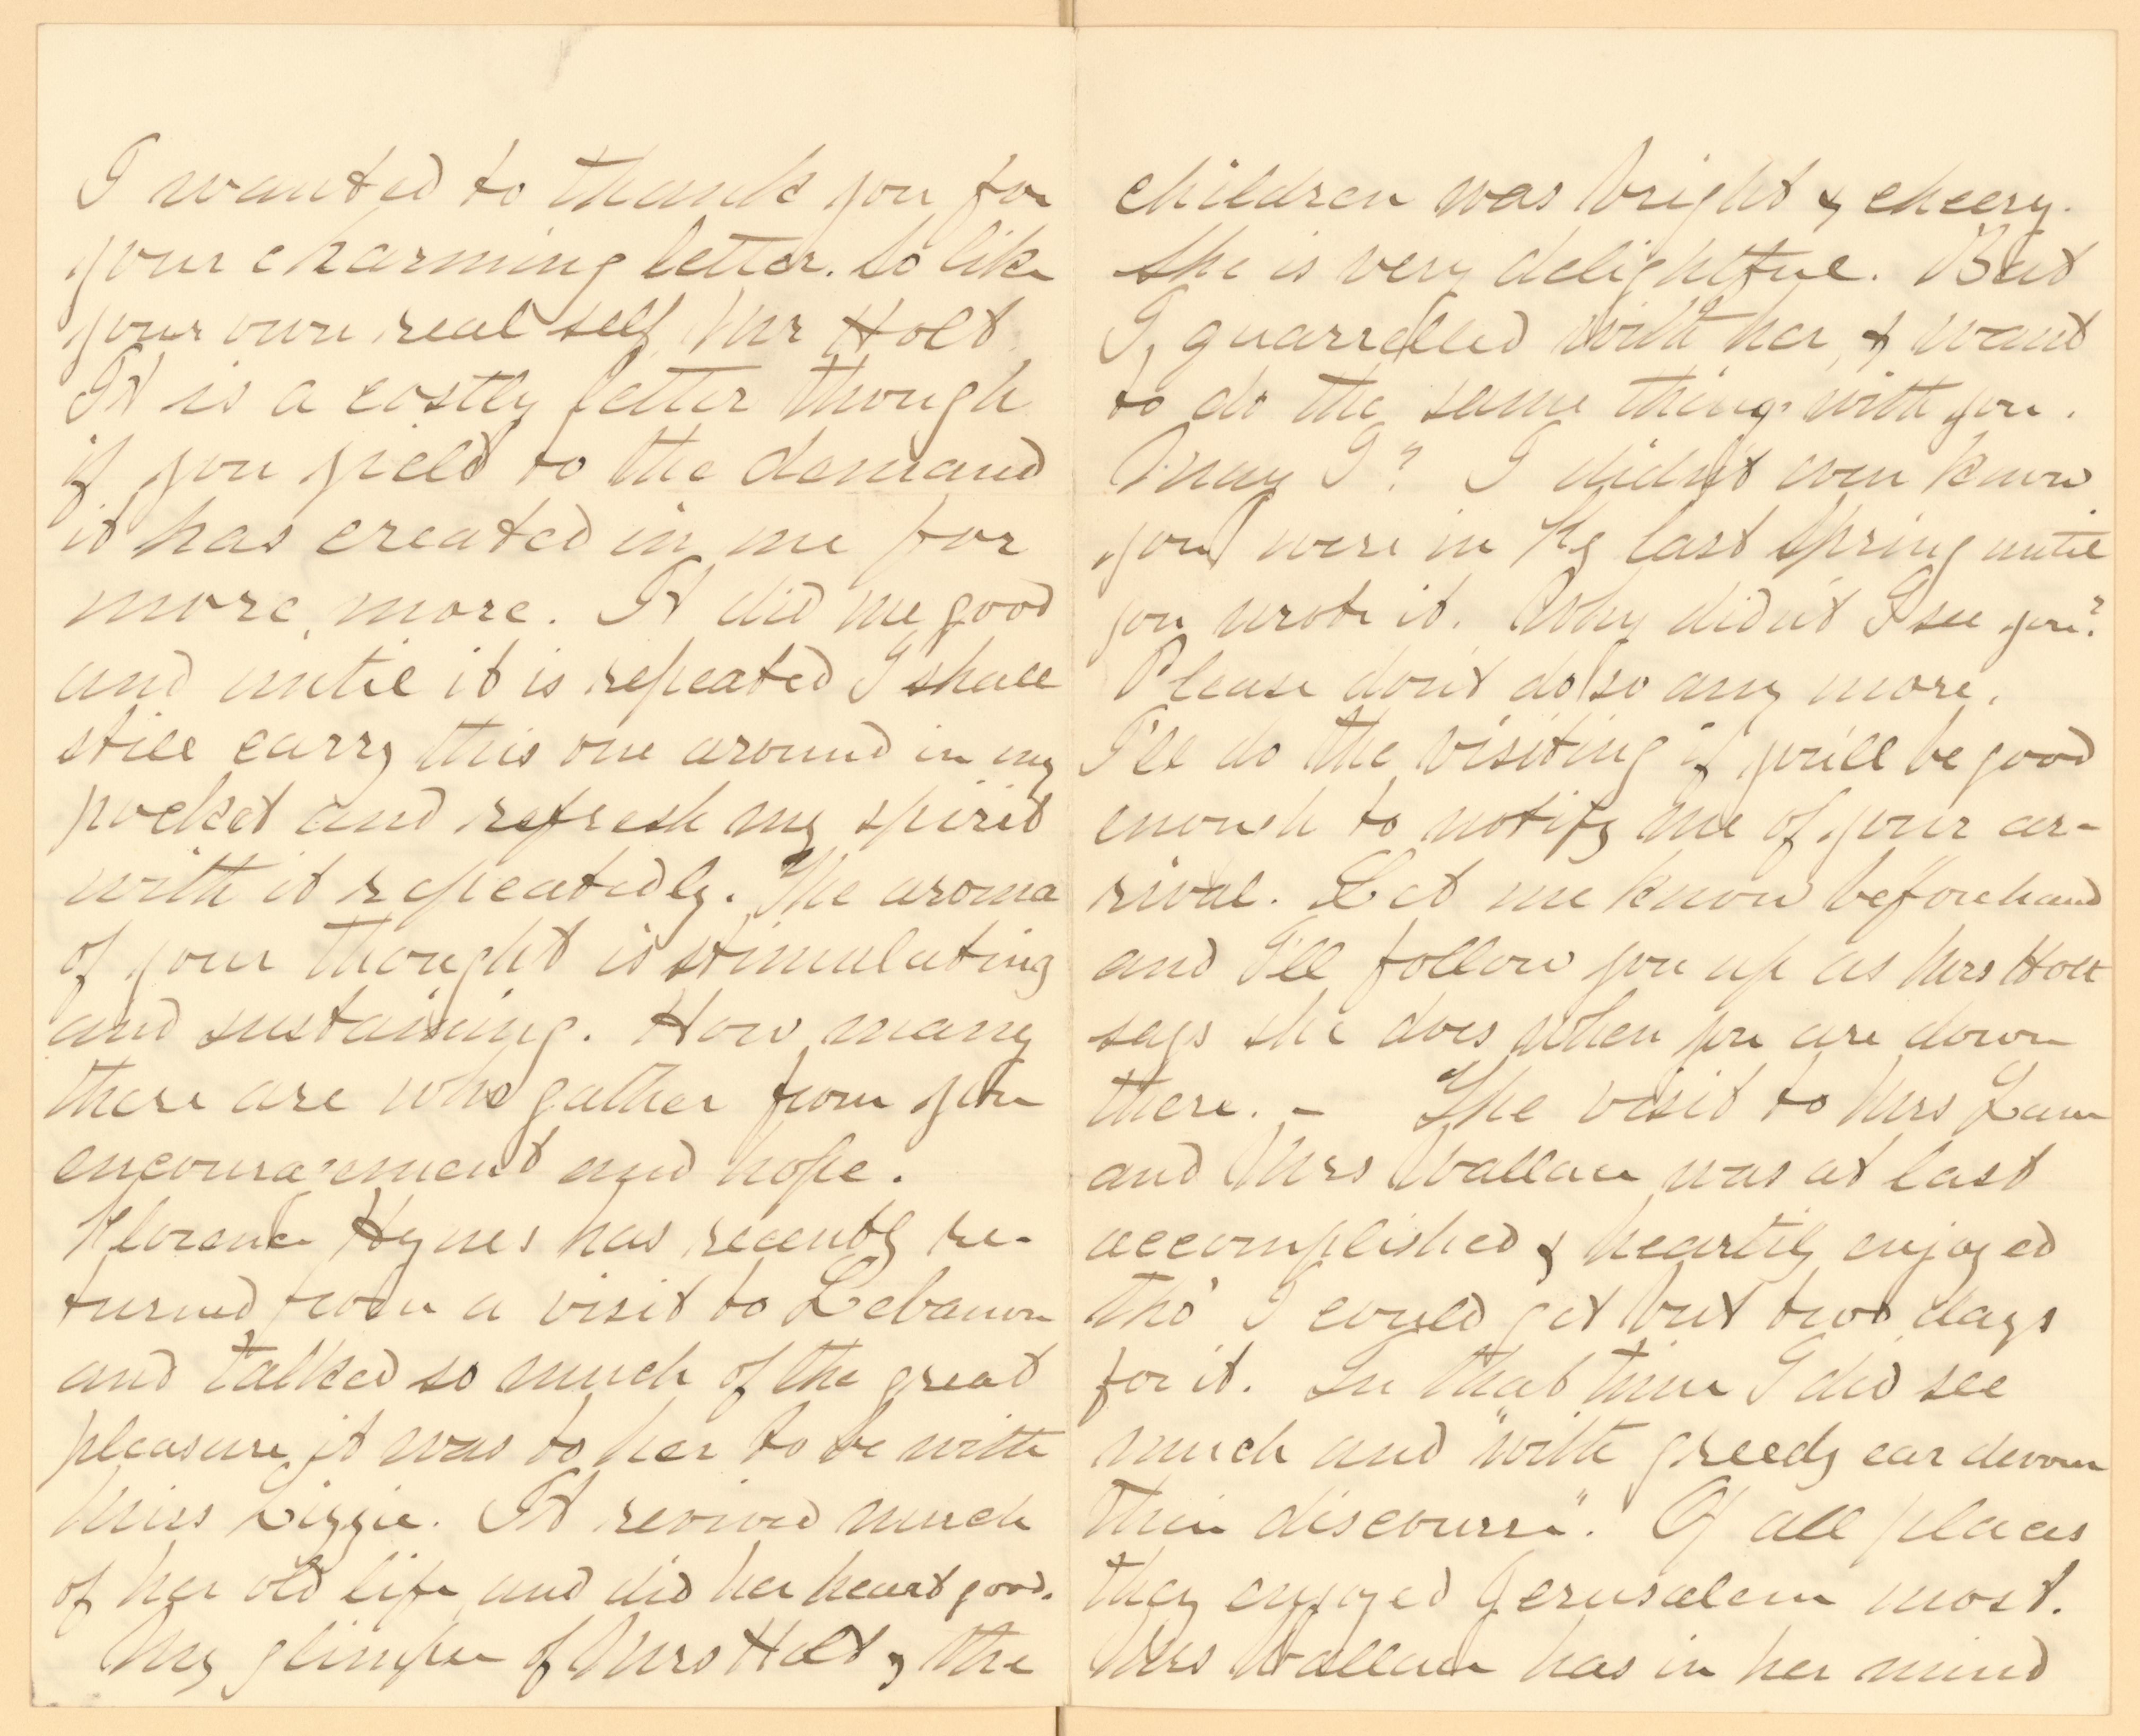 I wanted to thank you for
your charming letter. So like
your own real self, Mr Holt.
It is a costly letter though
if you yield to the demand
it has created in me for
more, more. It did me good
and until it is repeated I shall
still carry this one around in my
pocket and refresh my spirit
with it repeatedly. The aroma
of your thought is stimulating
and sustaining. How many
there are who gather from you
encouragement and hope.
Florence Hynes has recently re-
turned from a visit to Lebanon
and talked so much of the great
pleasure it was to her to be with
Miss Lizzie. It revived much
of her old life and did her heart good.
My glimpse of Mrs Holt & the
children was bright & cheery.
She is very delightful. But
I quarrelled with her, & want
to do the same thing with you.
May I? I didn't even know
you were in Ky last Spring until
you wrote it. Why didn't I see you?
Please don't do so any more.
I'll do the visiting if you'll be good
enough to notify me of your ar-
rival. Let me know beforehand
and I'll follow you up as Mrs Holt
says she does when you are down
there. – The visit to Mrs Lane
and Mrs Wallace was at last
accomplished & heartily enjoyed
tho' I could get but two days
for it. In that time I did see
much and "with greedy ear devour
their discourse". Of all places
they enjoyed Jerusalem most.
Mrs Wallace has in her mind